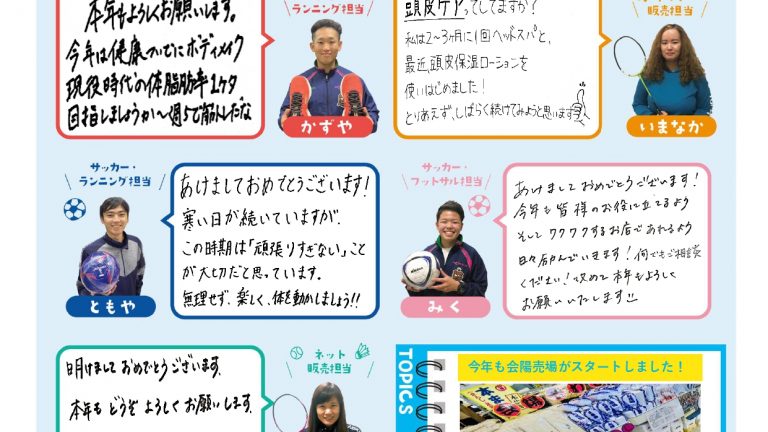 本年もよろしくお願いします。
今年は健康ついでにボディメイク
現役時代の体脂肪率1ケタ
目指しましょうか〜週5で筋トレだな
ランニング担当
かずや
頭皮ケアってしてますか?
私は2〜3ヶ月に1回ヘッドスパと、
最近、頭皮保湿ローションを
使いはじめました!
とりあえず、しばらく続けてみようと思います
販売担当
いまなか
サッカー・
ランニング担当
ともや
あけましておめでとうございます!
寒い日が続いていますが、
この時期は「頑張りすぎない」こと
が大切だと思っています。
無理せず、楽しく、体を動かしましょう!!
サッカー・
フットサル担当
みく
あけましておめでとうございます!
今年も皆様のお役に立てるよう
そしてワクワクするお店であれるよう
日々励んでいきます!何でもご相談
ください!改めて本年もよろしく
お願いいたします
明けましておめでとうございます。
本年もどうぞよろしくお願いします。
ネット
販売担当
TOPICS
今年も会陽売場がスタートしました!